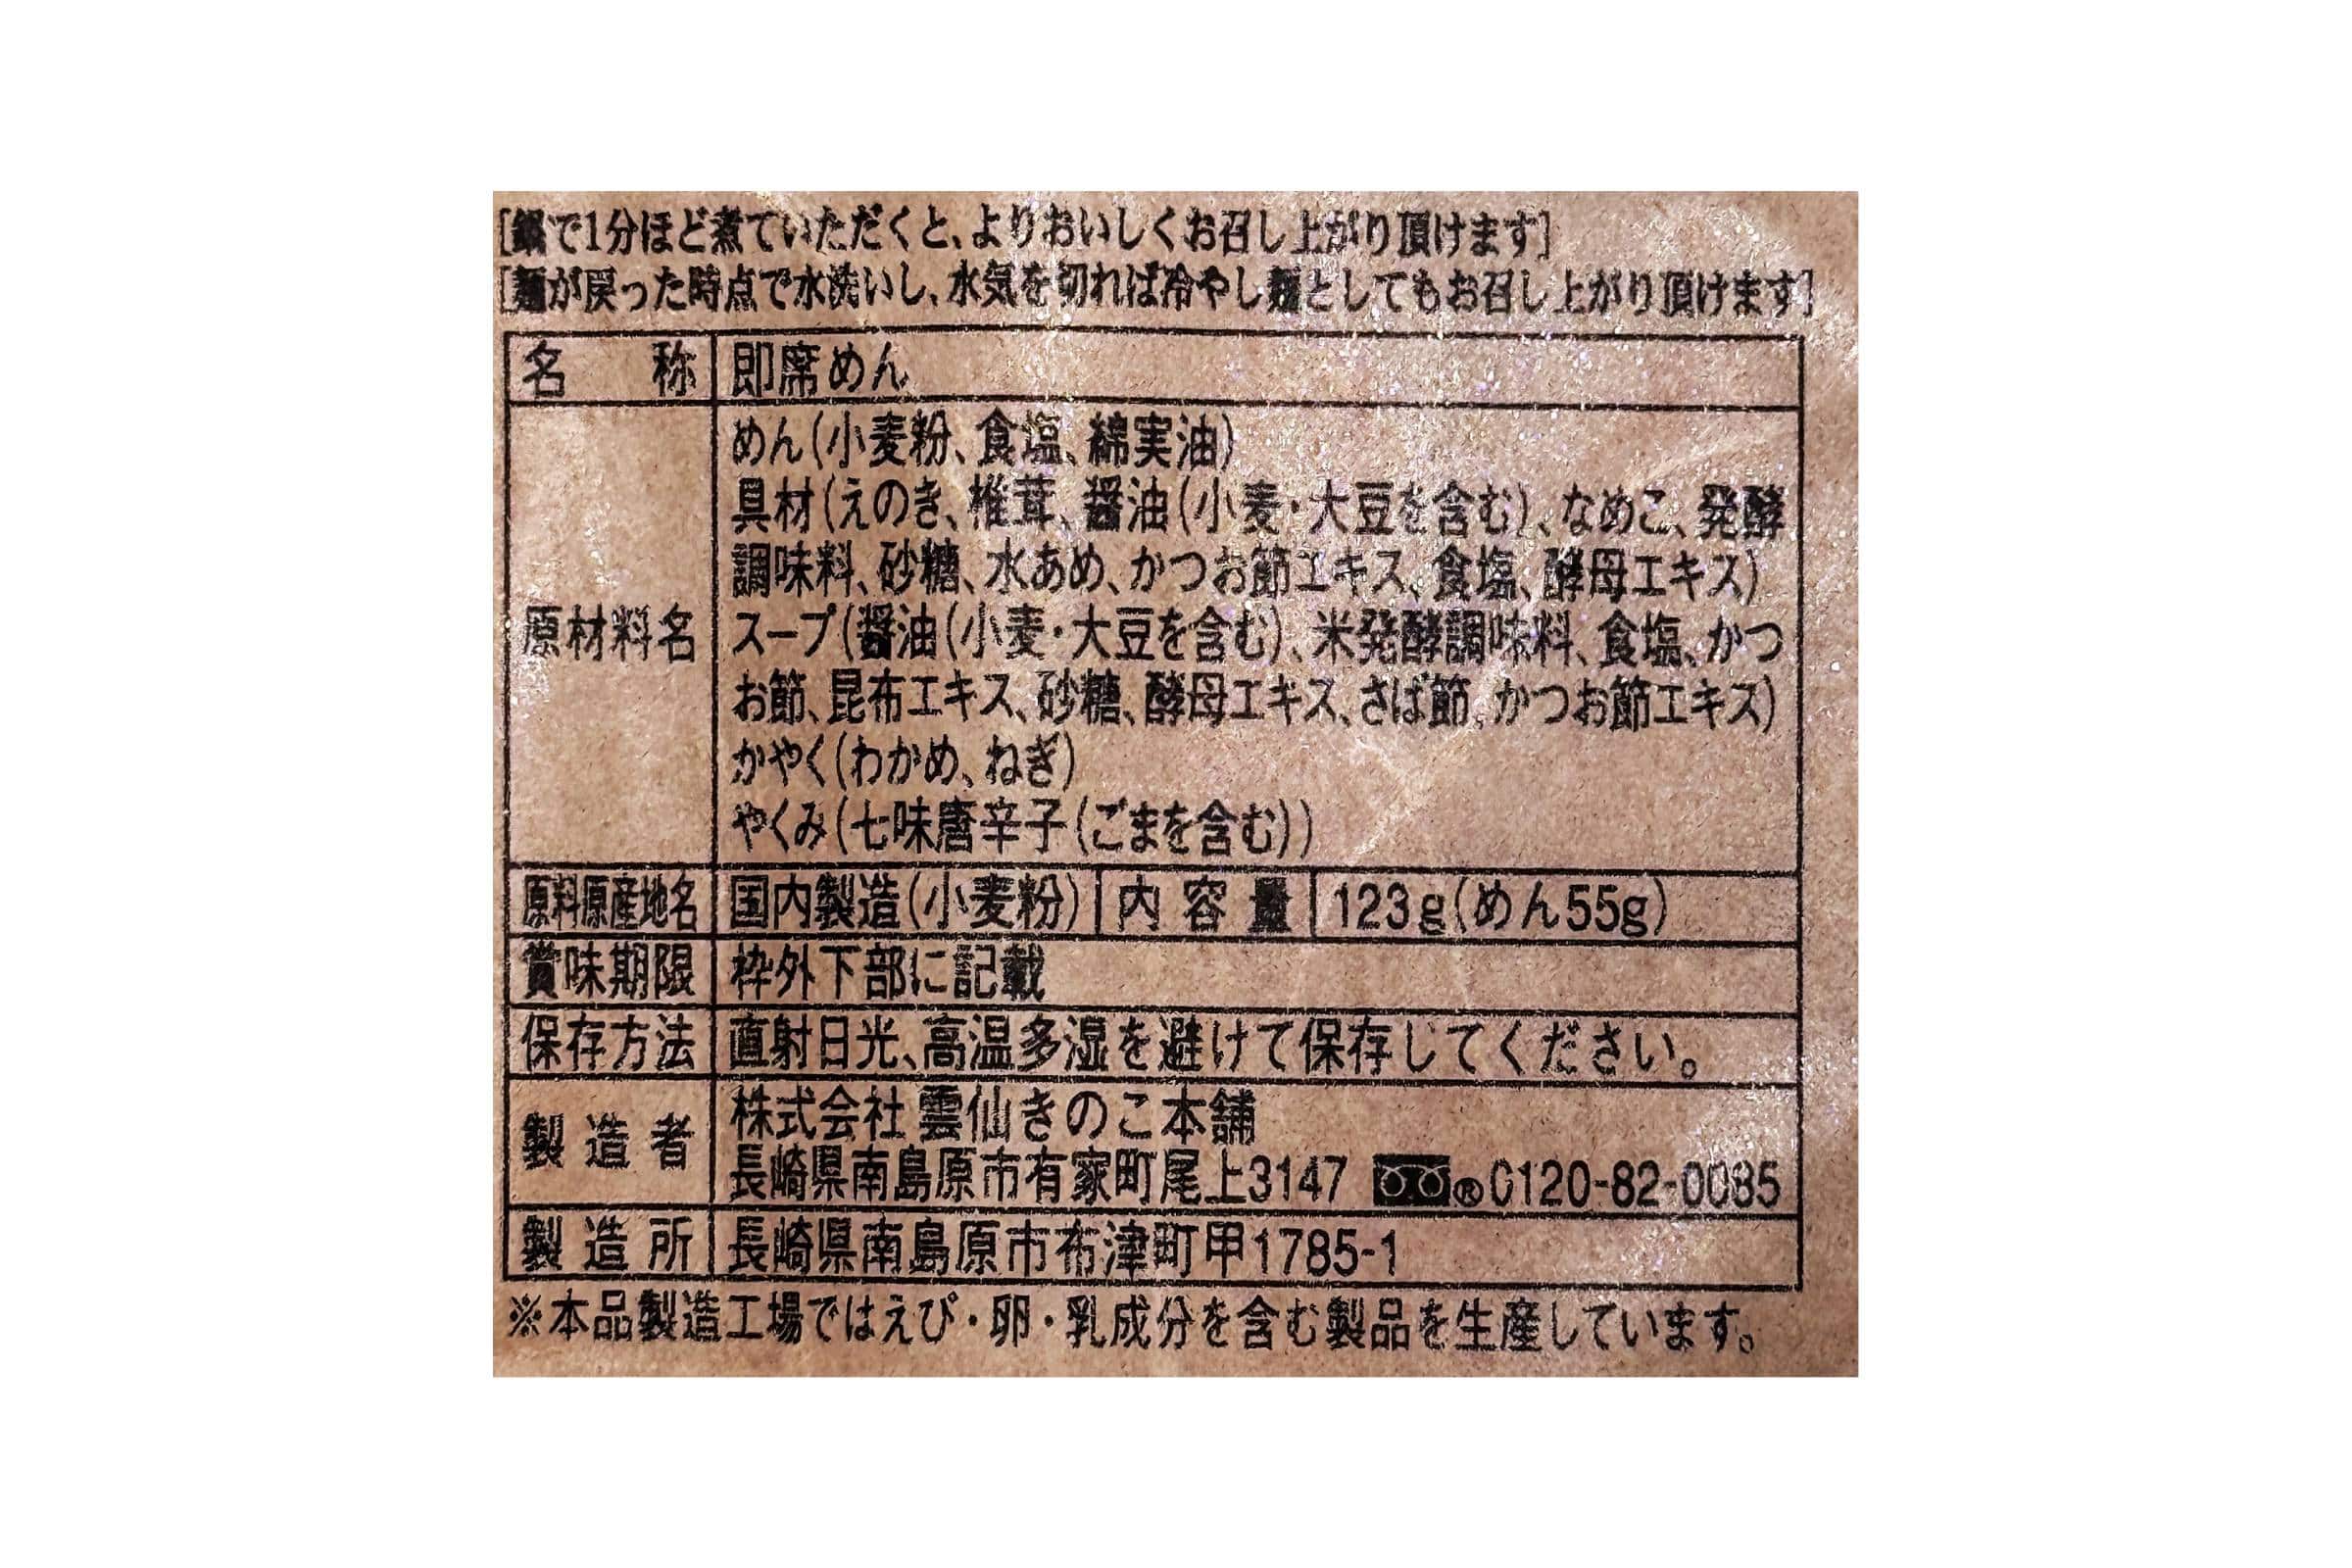 [鍋で1分ほど煮ていただくと、よりおいしくお召し上がり頂けます]
[麺が戻った時点で水洗いし、水気を切れば冷やし麺としてもお召し上がり頂けます]
名称 即席めん
原材料名 めん(小麦粉、食塩、綿実油)
具材(えのき、椎茸、醤油(小麦・大豆を含む)、なめこ、発酵
調味料、砂糖、水あめ、かつお節エキス、食塩、酵母エキス)
スープ(醤油(小麦・大豆を含む)、米発酵調味料、食塩、かつ
お節、昆布エキス、砂糖、酵母エキス、さば節、かつお節エキス)
かやく(わかめ、ねぎ)
やくみ(七味唐辛子(ごまを含む))
原料原産地名 国内製造(小麦粉) 内容量 123g(めん55g)
賞味期限 枠外下部に記載
保存方法 直射日光、高温多湿を避けて保存してください。
製造者 株式会社 雲仙きのこ本舗
長崎県南島原市有家町尾上3147 ®0120-82-0085
製造所 長崎県南島原市布津町甲1785-1
※本品製造工場ではえび・卵・乳成分を含む製品を生産しています。